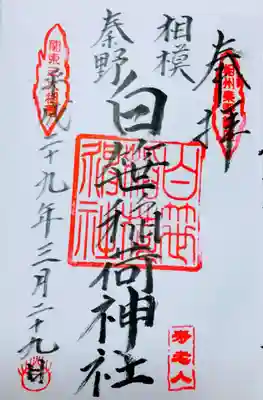 奉拝
相模
秦野
白笹稲荷神社
平成二十九年三月二十九日
白笹稲荷神社
寿老人